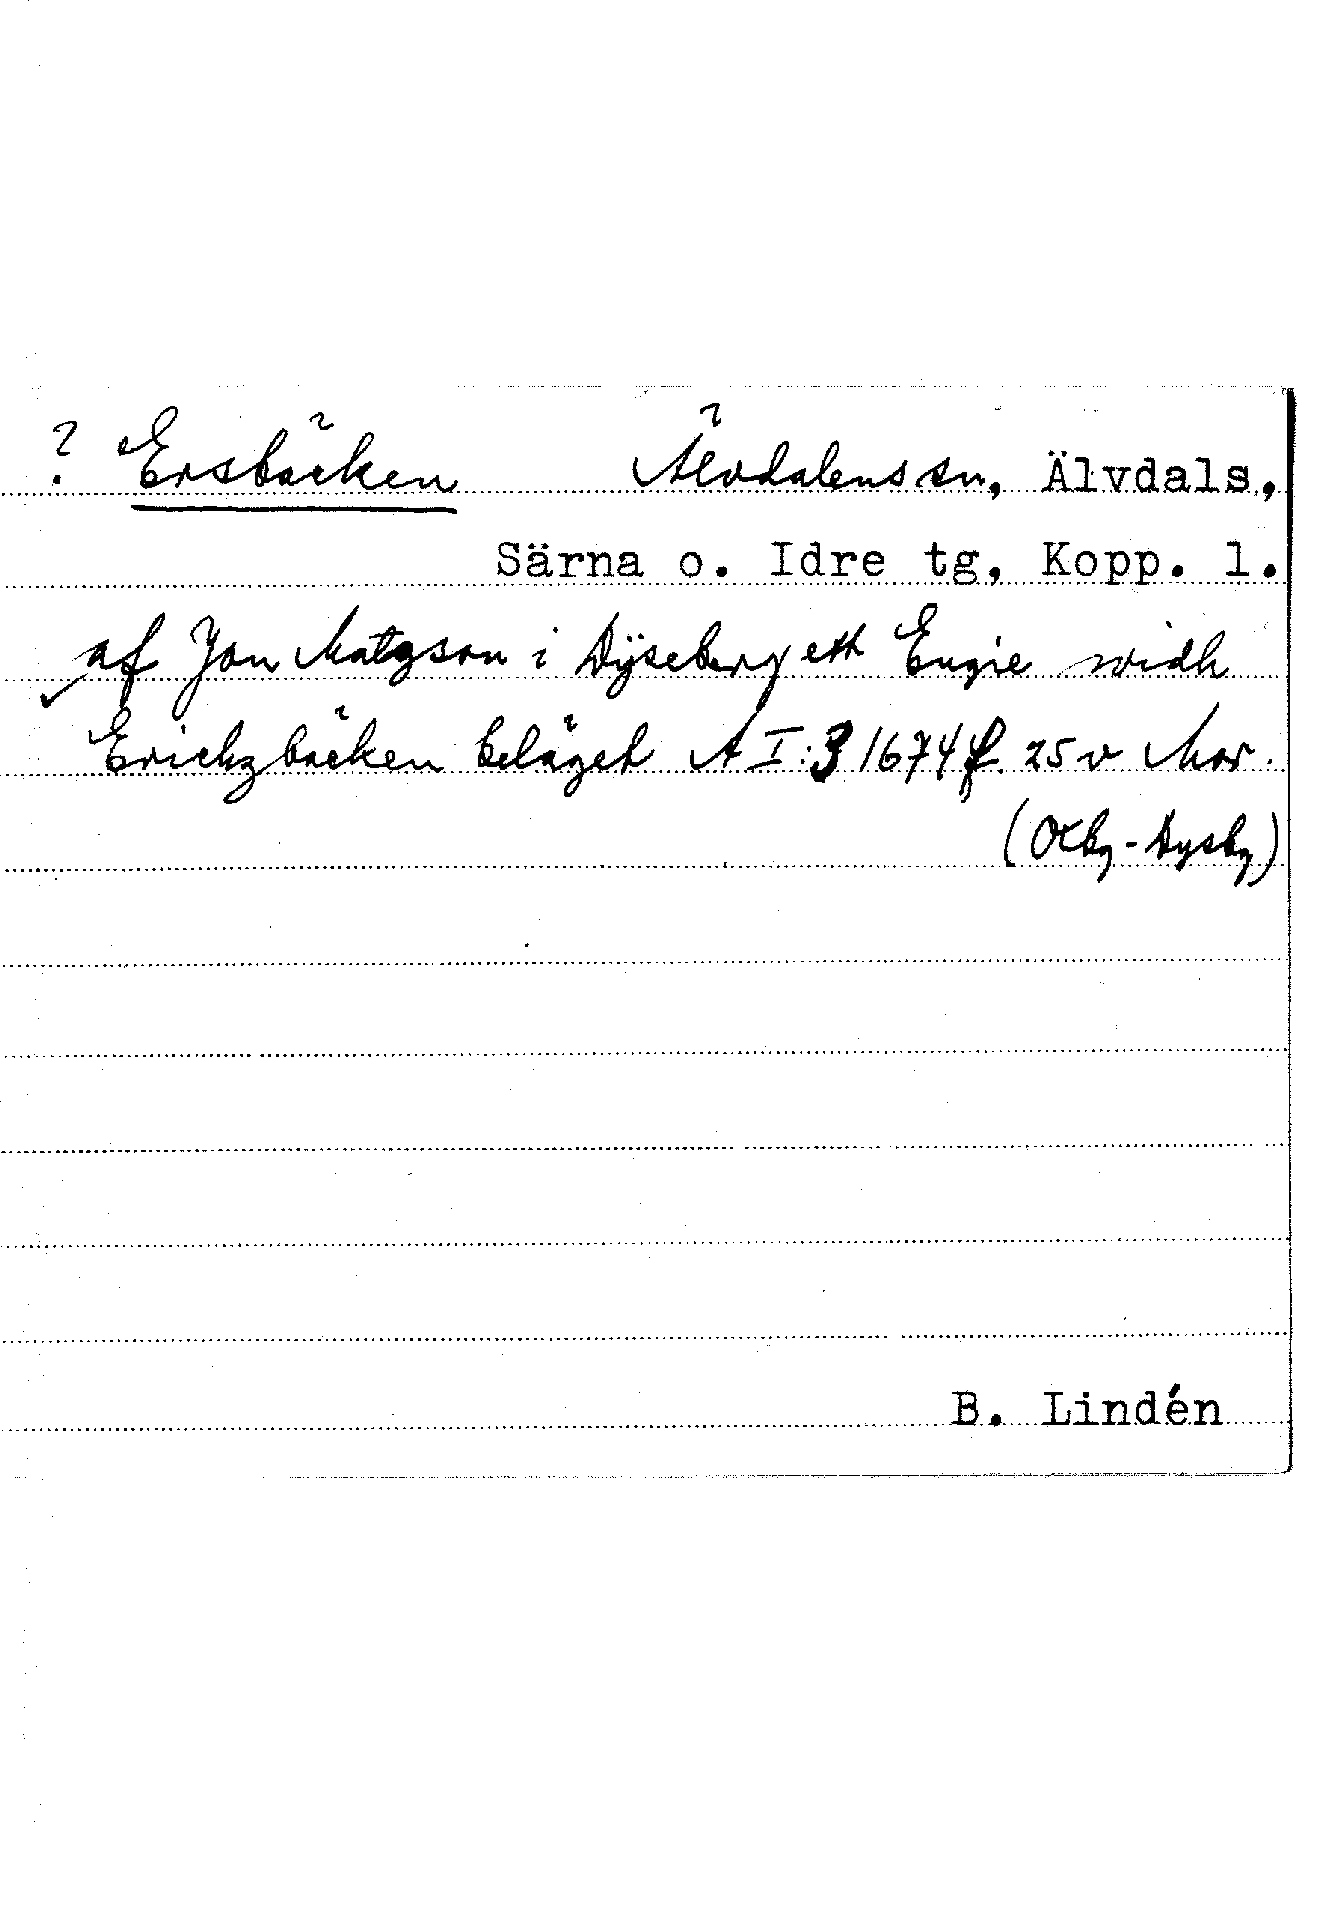 ? Ersbäcken Älvdalens sn, Älvdals,
Särna o. Idre tg, Kopp. l.
af Jon Matzson i Dÿseberg ett Engie widh
Erichzbäcken beläget A I:3 1674 f. 25 v Mor.
(Otby-Dysby)
B. Lindén